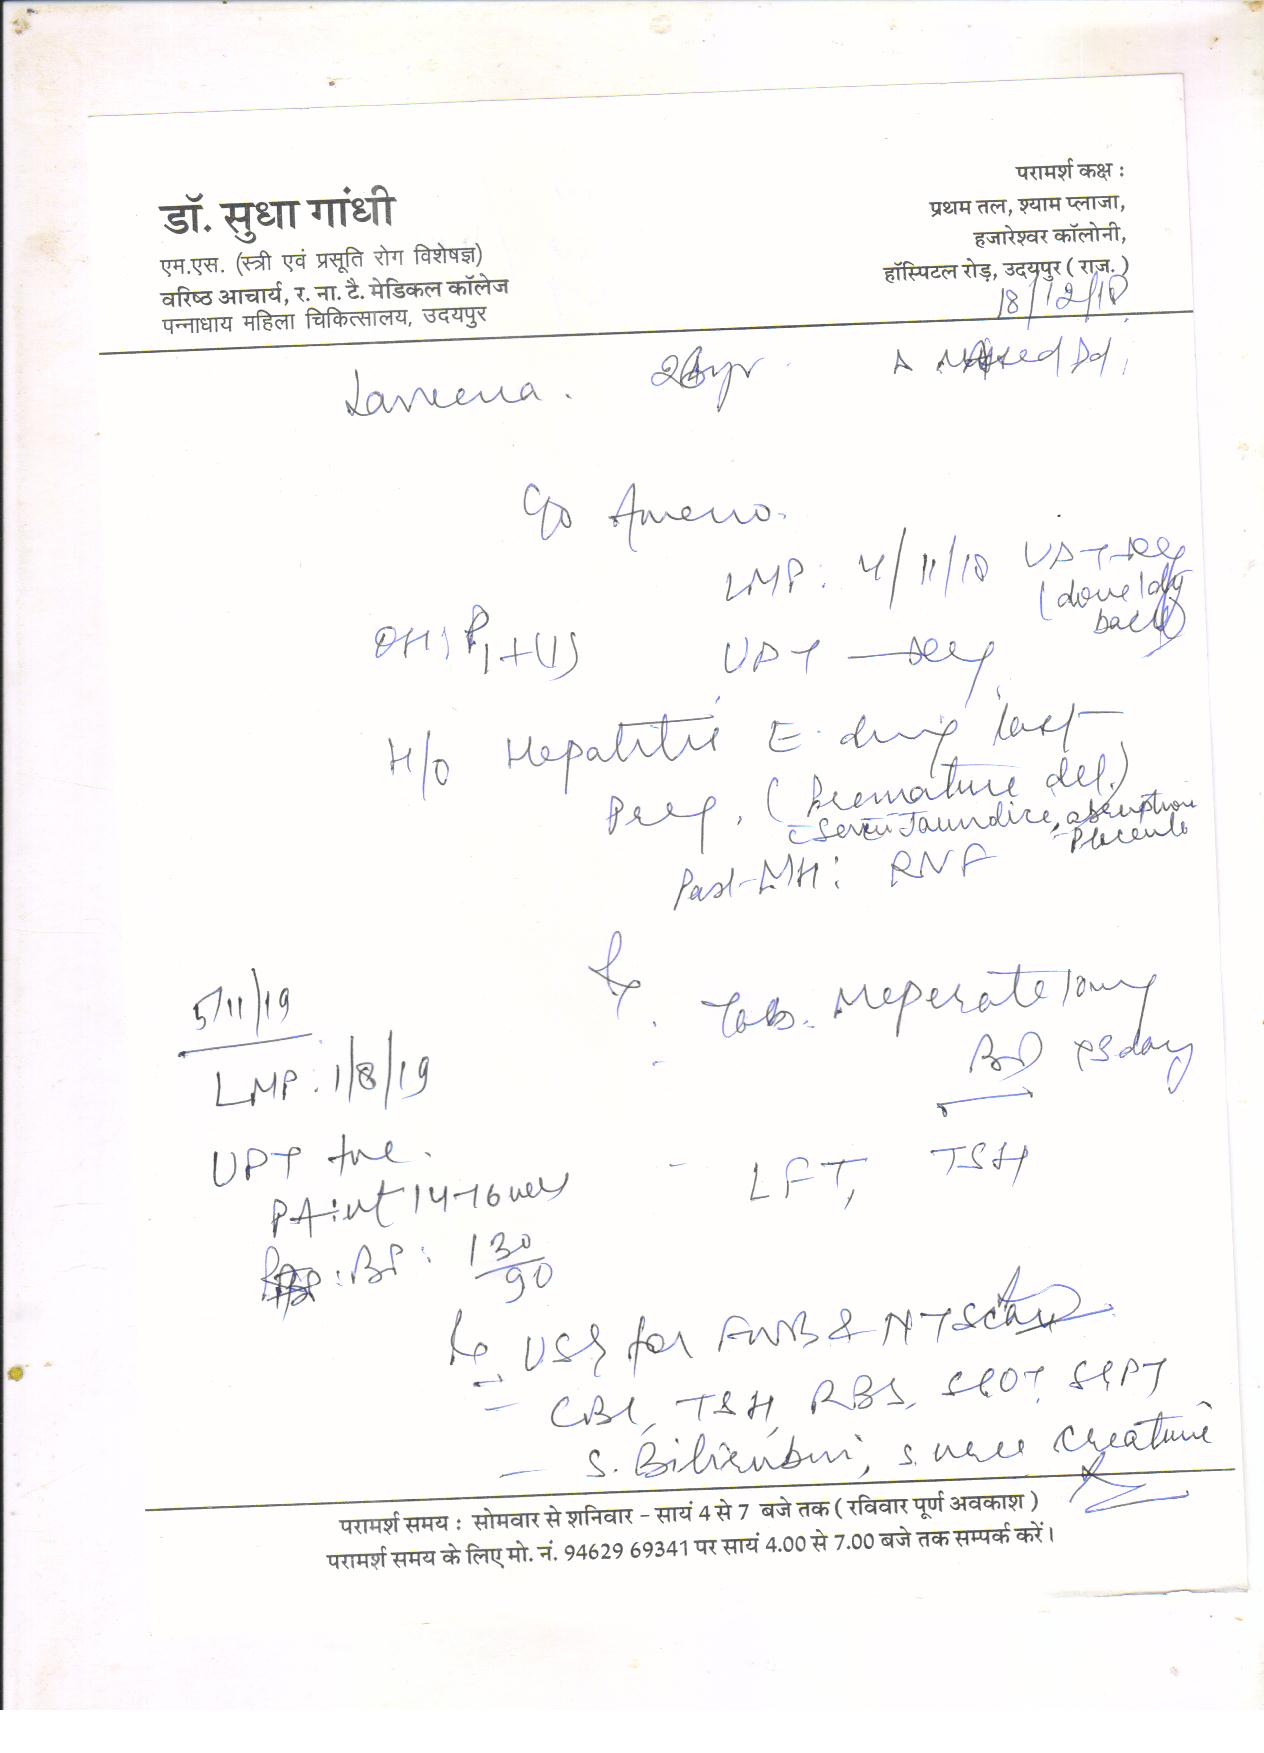 डॉ. सुधा गांधी
एम.एस. (स्त्री एवं प्रसूति रोग विशेषज्ञ)
वरिष्ठ आचार्य, र. ना. टै. मेडिकल कॉलेज
पन्नाधाय महिला चिकित्सालय, उदयपुर
परामर्श कक्ष :
प्रथम तल, श्याम प्लाजा,
हजारेश्वर कॉलोनी,
हॉस्पिटल रोड़, उदयपुर ( राज. )
18/12/18
c/o Ameno.
LMP : 4/11/18 UPT-neg
(done 1 day
back)
OH: P1+
UPT - neg
H/o Hepatitis E during last
Preg. (Premature del.)
c severe Jaundice, abruption
Placenta
Past-MH:
Rx
Tab. Meperate 10mg
BD
- LFT, TSH
5/11/19
LMP : 1/8/19
UPT +ve.
PA: ut 14-16
BP : 130/90
Rx USG for FWB & NT Scan
- CBC, TSH, RBS, SGOT, SGPT
- S. Bilirubin, S. Creatinine
परामर्श समय : सोमवार से शनिवार - सायं 4 से 7 बजे तक ( रविवार पूर्ण अवकाश )
परामर्श समय के लिए मो. नं. 94629 69341 पर सायं 4.00 से 7.00 बजे तक सम्पर्क करें।